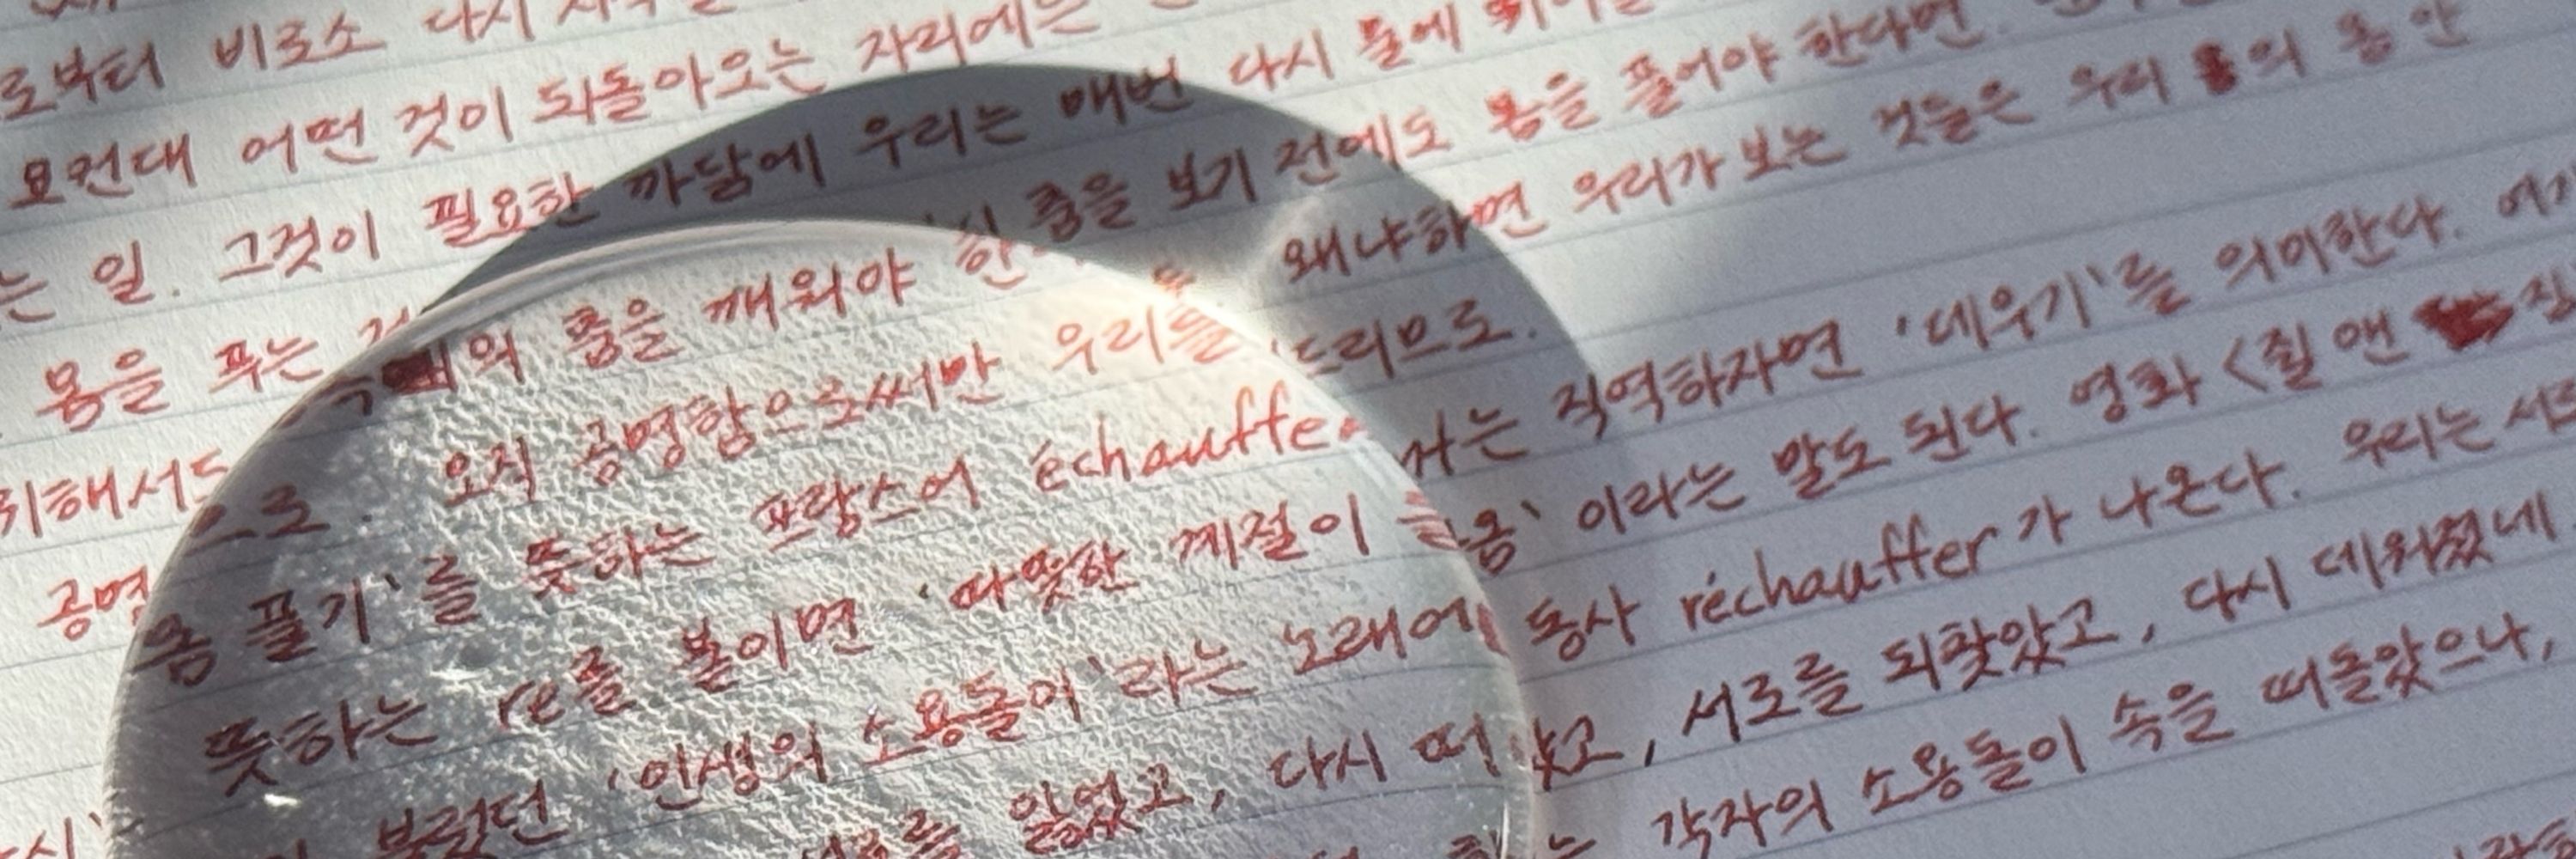 로부터 비로소 다시
요컨대 어떤 것이 되돌아오는 자리에는
는 일. 그것이 필요한 까닭에 우리는 매번 다시 몸에
몸을 푸는 의 몸을 깨워야 한 춤을 보기 전에도 몸을 풀어야 한다면.
위해서도 으로. 오직 공명함으로써만 우리를 드리므로. 왜냐하면 우리가 보는 것들은 우리 의 몸 안
공명
몸 풀기'를 뜻하는 프랑스어 échauffer 는 직역하자면 '데우기'를 의미한다.
뜻하는 re를 붙이면 '따뜻한 계절이 옴' 이라는 말도 된다. 영화 <쥴 앤
불렀던 '인생의 소용돌이'라는 노래에 동사 réchauffer가 나온다. 우리는
를 잃었고, 다시 았고, 서로를 되찾았고, 다시 데워졌네
는 각자의 소용돌이 속을 떠돌았으나,